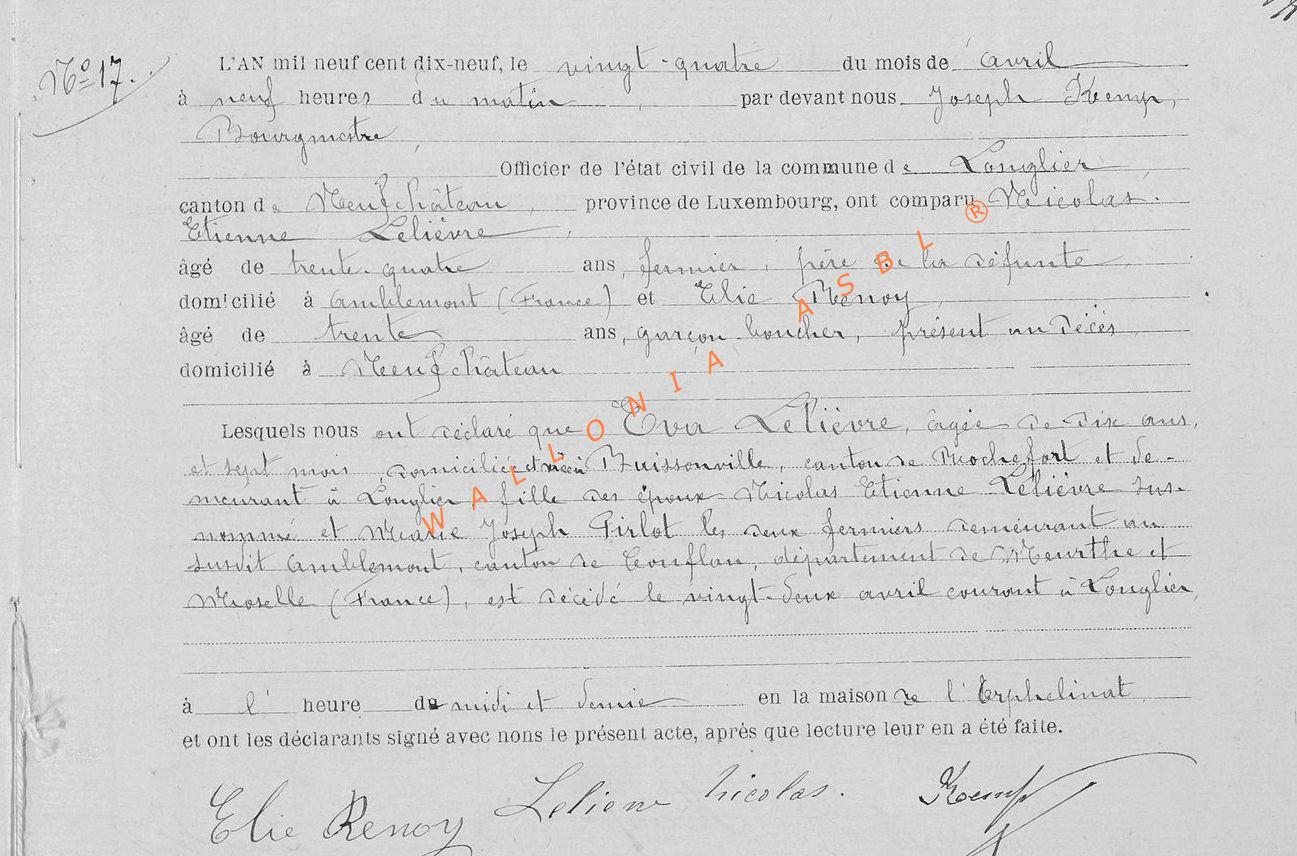 No 17.
L'AN mil neuf cent dix-neuf, le vingt-quatre du mois de avril
à neuf heures du matin, par devant nous Joseph Kemp,
Bourgmestre,
Officier de l'état civil de la commune de Longlier,
canton de Neufchâteau, province de Luxembourg, ont comparu Nicolas
Etienne Lelièvre,
âgé de trente-quatre ans, fermier, père de la défunte
domicilié à Amblemont (France) et Elie Renoy,
âgé de trente ans, garçon boucher, présent au décès
domicilié à Neufchâteau
Lesquels nous ont déclaré que Eva Lelièvre, âgée de dix ans,
et sept mois, domiciliée et née à Buissonville, canton de Rochefort et de-
meurant à Longlier, fille des époux Nicolas Etienne Lelièvre sus-
nommé et Marie Joseph Girlot les deux fermiers demeurant au
susdit Amblemont, canton de Conflan, département de Meurthe et
Moselle (France), est décédé le vingt-deux avril courant à Longlier,
à l' heure de midi et demie en la maison de l'Orphelinat
et ont les déclarants signé avec nous le présent acte, après que lecture leur en a été faite.
Elie Renoy Lelievre Nicolas. Kemp
WALLONIA ASBL ®